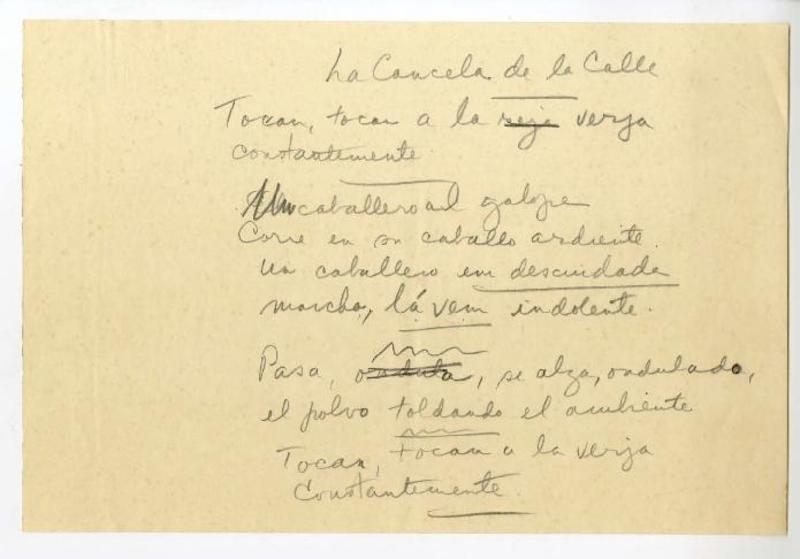 La Cancela de la Calle
Tocan, tocan a la reja verja
constantemente
Un caballero al galope
Corre en su caballo ardiente.
Un caballero em descuidada
marcha, lá vem indolente.
Pasa, ondula, se alza, ondulado,
el polvo toldando el ambiente
Tocan, tocan a la verja
Constantemente.